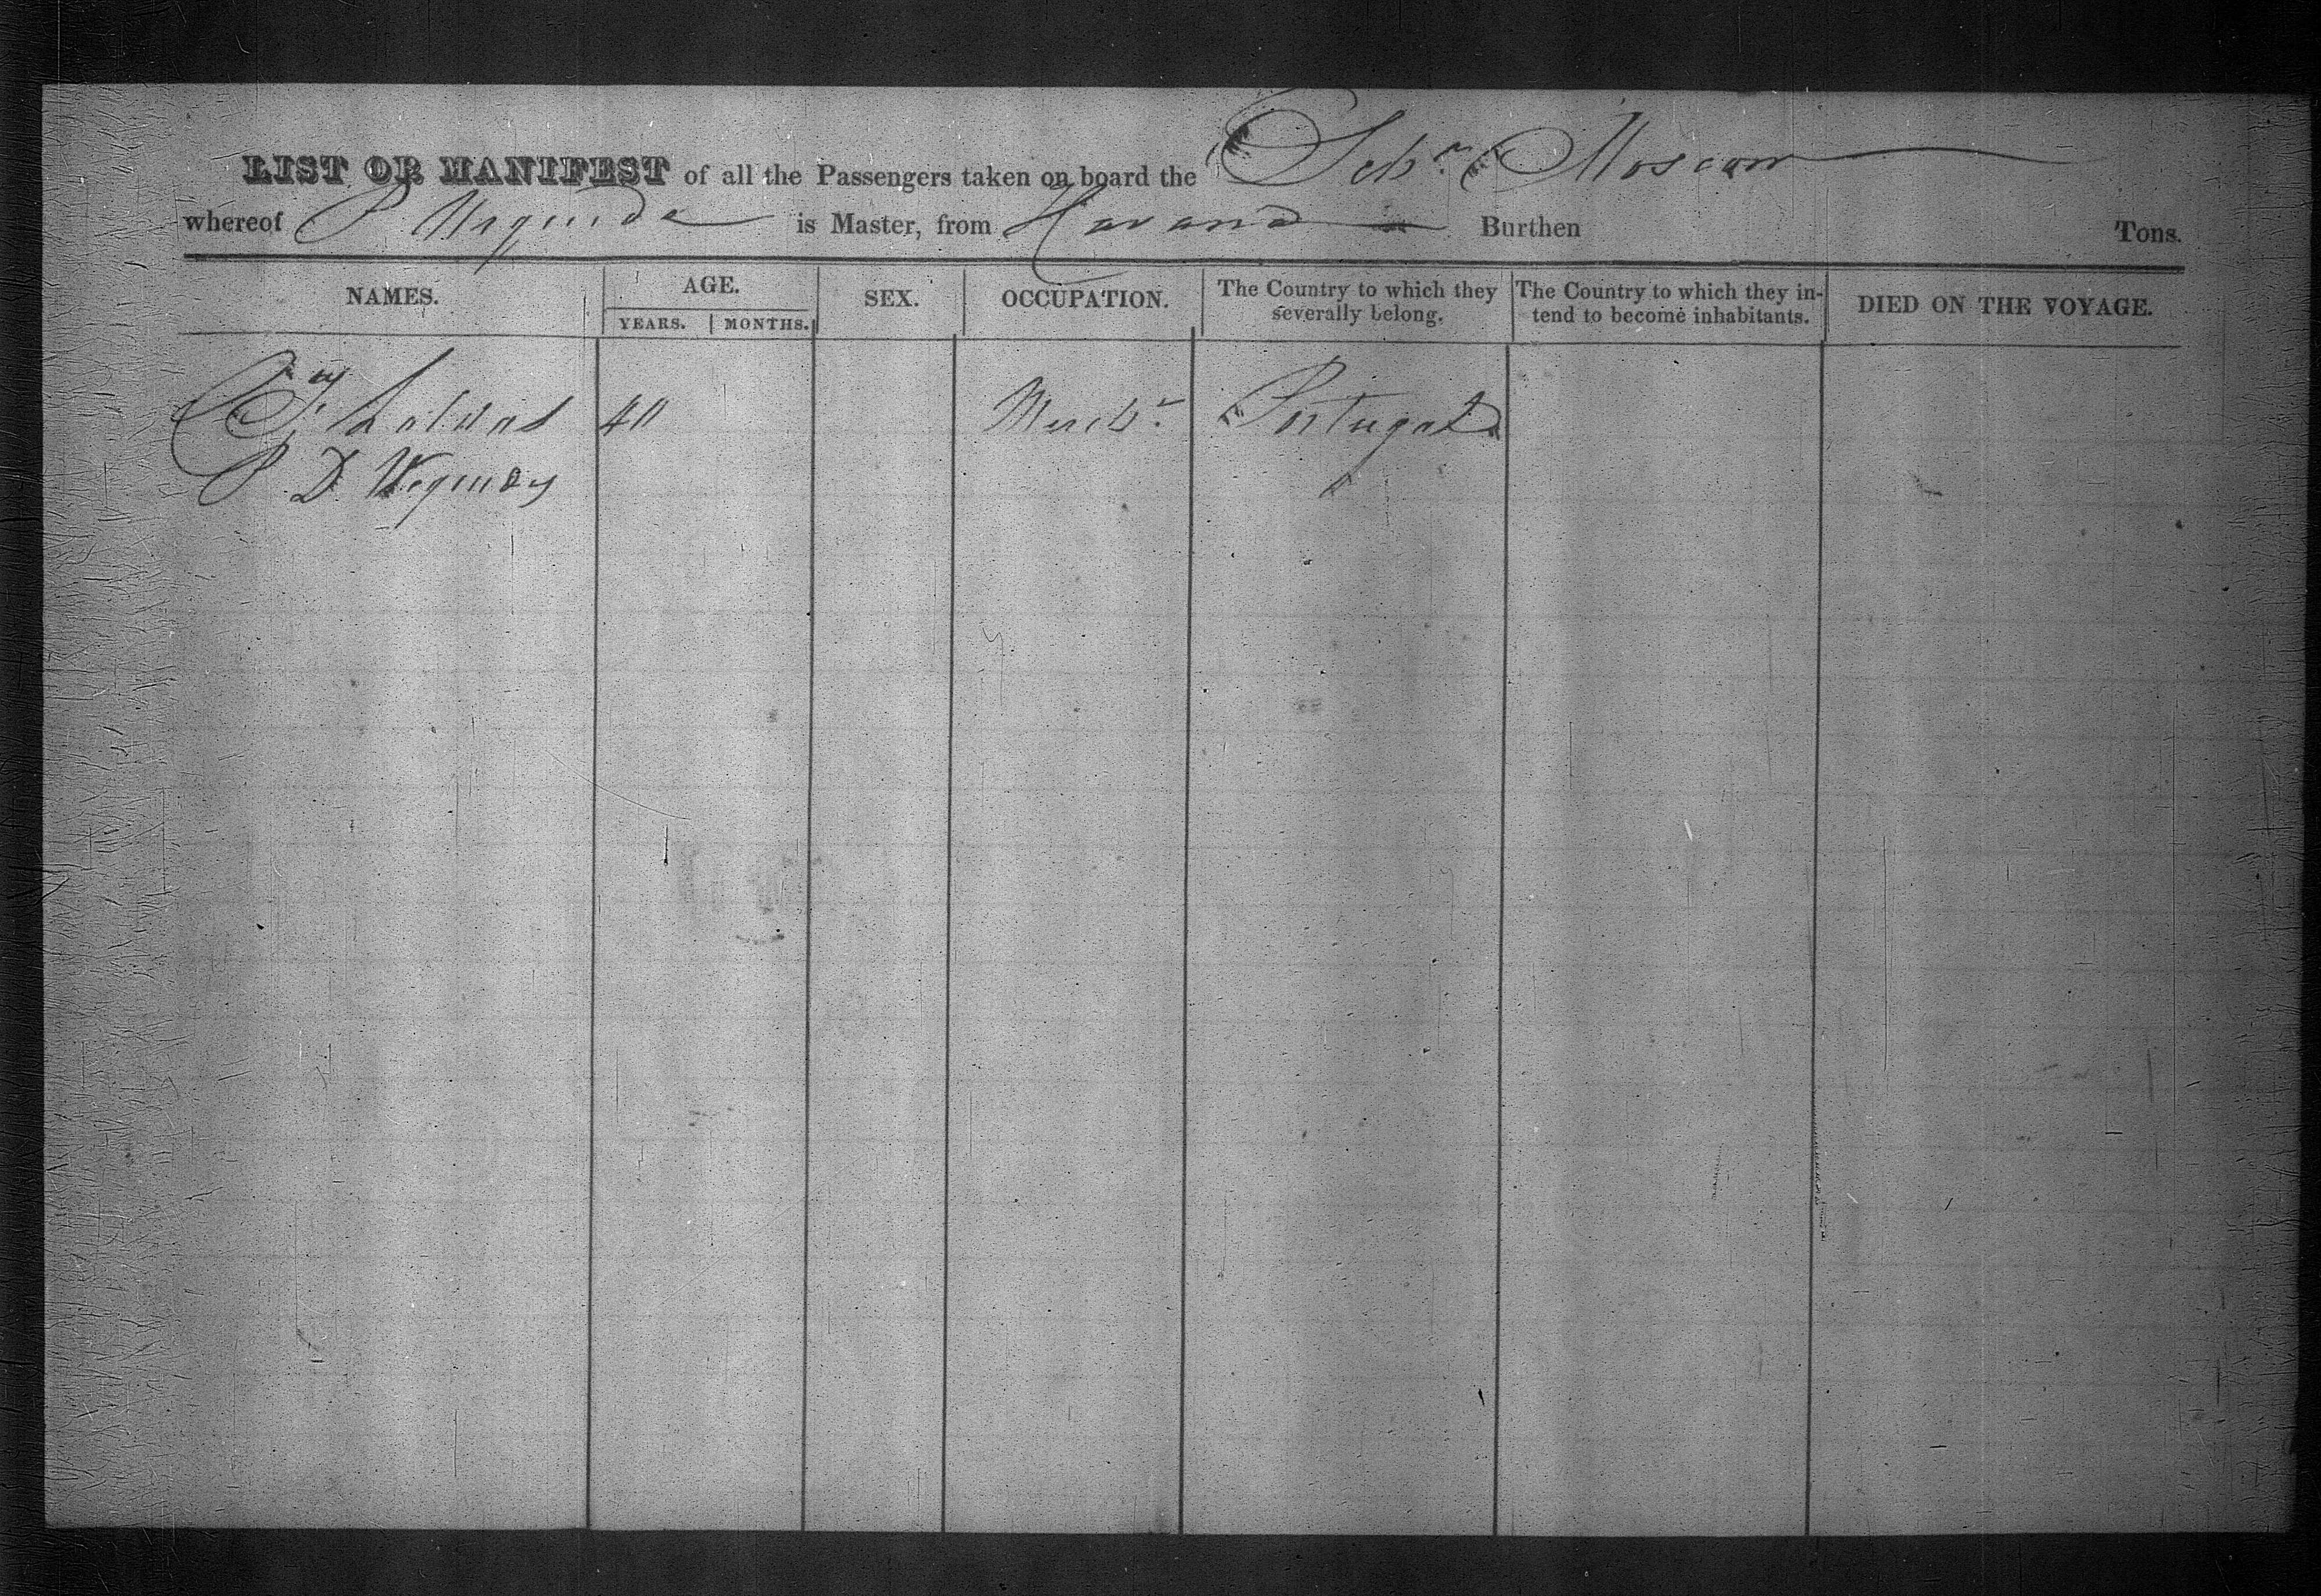 LIST OR MANIFEST of all the Passengers taken on board the Schr Moscow
whereof P is Master, from Havana Burthen Tons.
NAMES. AGE. SEX. OCCUPATION. The Country to which they severally belong. The Country to which they in-tend to become inhabitants. DIED ON THE VOYAGE.
YEARS. MONTHS.
40 Mercht Portugal
P D